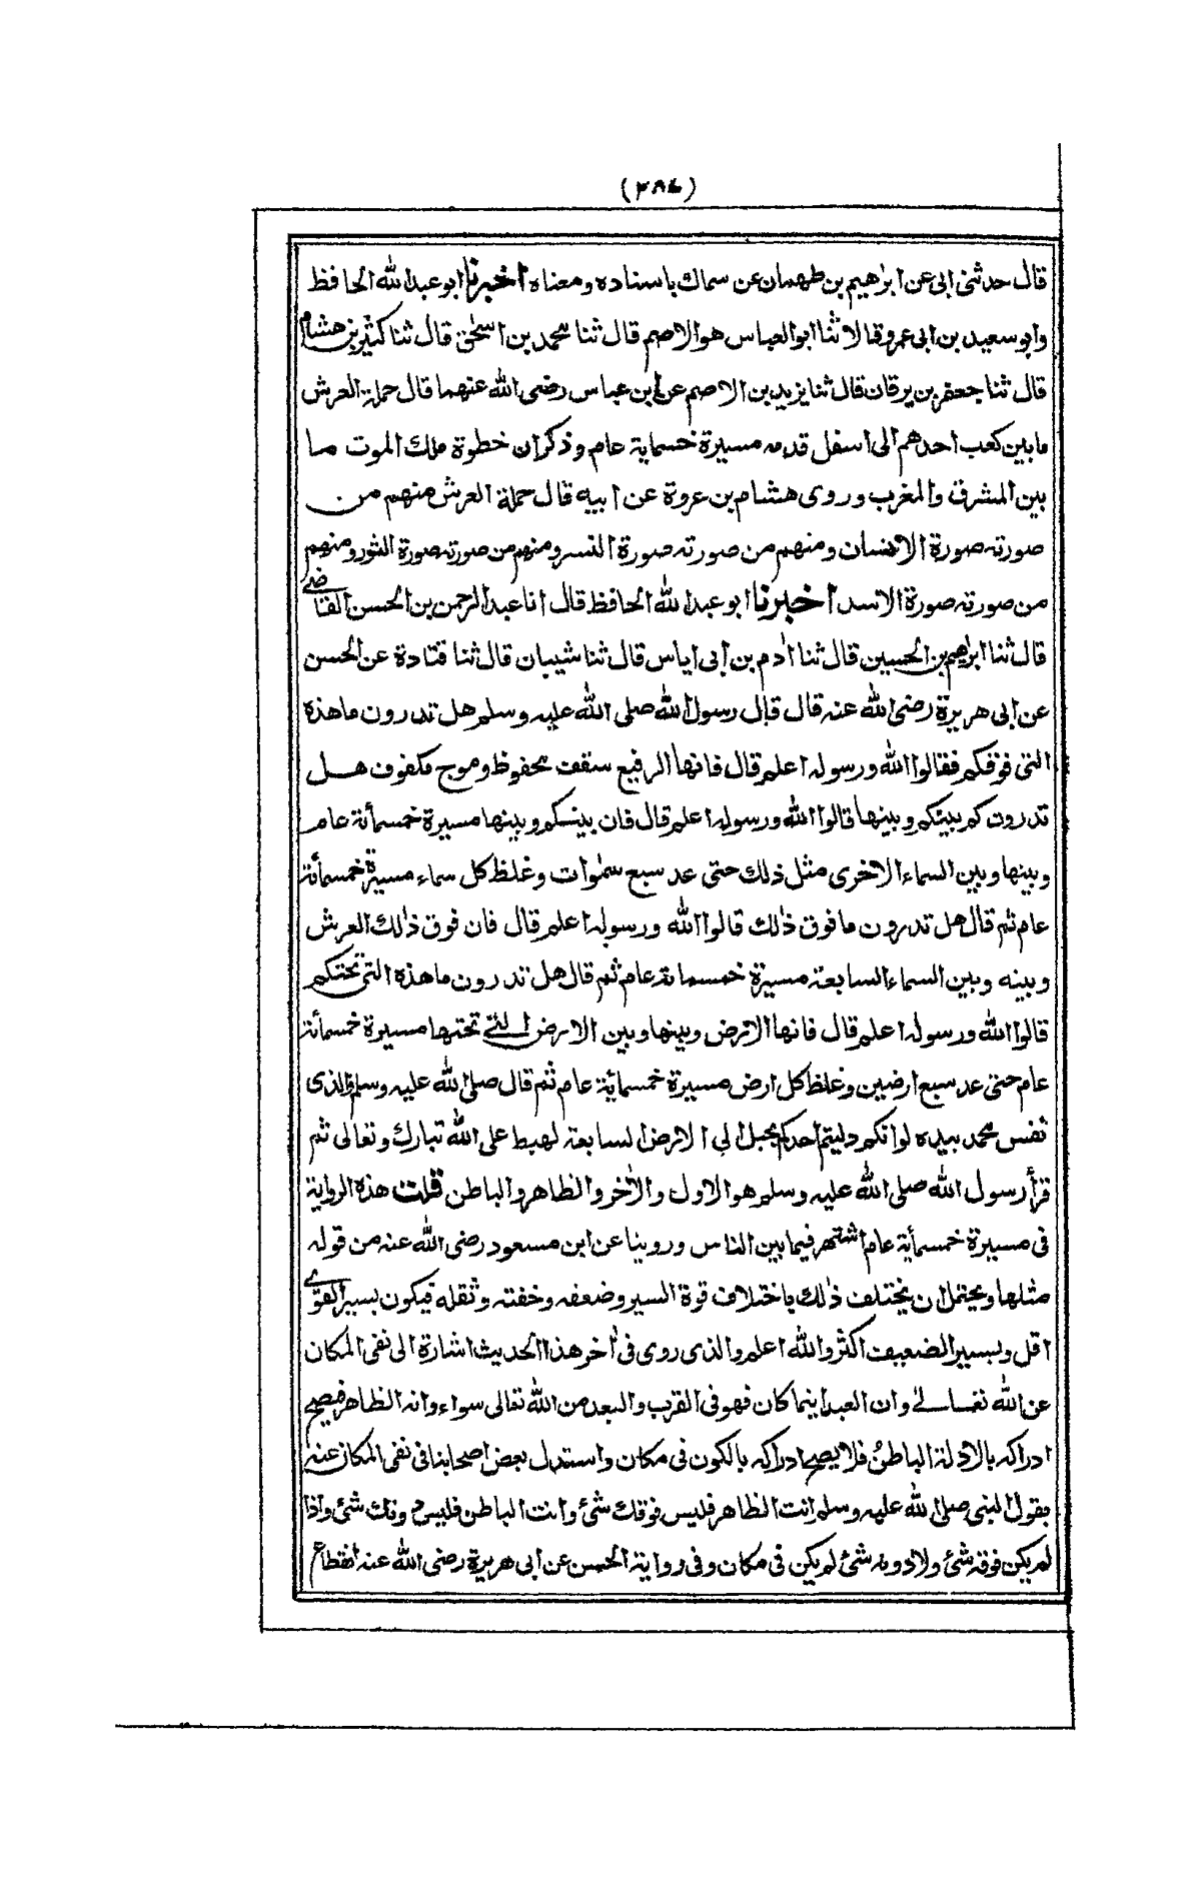 (٢٨٧)
قال حدثنى ابى عن ابراهيم بن طهمان عن سماك باسناده ومعناه اخبرنا ابو عبد الله الحافظ
وابو سعيد بن ابى عمرو قالا ثنا ابو العباس هو الاصم قال ثنا محمد بن اسحٰق قال ثنا كثير بن هشام
قال ثنا جعفر بن برقان قال ثنا يزيد بن الاصم عن ابن عباس رضى الله عنهما قال حملة العرش
ما بين كعب احدهم الى اسفل قدمه مسيرة خمسماية عام وذكر ان خطوة ملك الموت ما
بين المشرق والمغرب وروى هشام بن عروة عن ابيه قال حملة العرش منهم من
صورته صورة الانسان ومنهم من صورته صورة النسر ومنهم من صورته صورة الثور ومنهم
من صورته صورة الاسد اخبرنا ابو عبد الله الحافظ قال انا عبد الرحمن بن الحسن القاضى
قال ثنا ابراهيم بن الحسين قال ثنا اٰدم بن ابى اياس قال ثنا شيبان قال ثنا قتادة عن الحسن
عن ابى هريرة رضى الله عنه قال قال رسول الله صلى الله عليه وسلم هل تدرون ما هذه
التى فوقكم فقالوا الله ورسوله اعلم قال فانها الرفيع سقف محفوظ وموج مكفوف هل
تدرون كم بينكم وبينها قالوا الله ورسوله اعلم قال فان بينكم وبينها مسيرة خمسمأئة عام
وبينها وبين السماء الاخرى مثل ذلك حتى عد سبع سمٰوات وغلظ كل سماء مسيرة خمسمأئة
عام ثم قال هل تدرون ما فوق ذٰلك قالوا الله ورسوله اعلم قال فان فوق ذٰلك العرش
وبينه وبين السماء السابعة مسيرة خمسمائة عام ثم قال هل تدرون ما هذه التى تحتكم
قالوا الله ورسوله اعلم قال فانها الارض وبينها وبين الارض التى تحتها مسيرة خمسمأئة
عام حتى عد سبع ارضين وغلظ كل ارض مسيرة خمسمائة عام ثم قال صلى الله عليه وسلم والذى
نفس محمد بيده لو انكم دليتم احدكم بحبل الى الارض السابعة لهبط على الله تبارك وتعالى ثم
قرأ رسول الله صلى الله عليه وسلم هو الاول والاٰخر والظاهر والباطن قلت هذه الرواية
فى مسيرة خمسمأية عام اشتهر فيما بين الناس وروينا عن ابن مسعود رضى الله عنه من قوله
مثلها ويحتمل ان يختلف ذٰلك باختلاف قوة السير وضعفه وخفته وثقله فيكون بسير القوى
اقل وبسير الضعيف اكثر والله اعلم والذى روى فى اٰخر هذا الحديث اشارة الى نفى المكان
عن الله تعالى وان العبد اينما كان فهو فى القرب والبعد من الله تعالى سواء وانه الظاهر فيصح
ادراكه بالادلة الباطن فلا يصح ادراكه بالكون فى مكان واستدل بعض اصحابنا فى نفى المكان عنه
بقول النبى صلى الله عليه وسلم انت الظاهر فليس فوقك شئ وانت الباطن فليس دونك شئ واذا
لم يكن فوقه شئ ولا دونه شئ لم يكن فى مكان وفى رواية الحسن عن ابى هريرة رضى الله عنه انقطاع